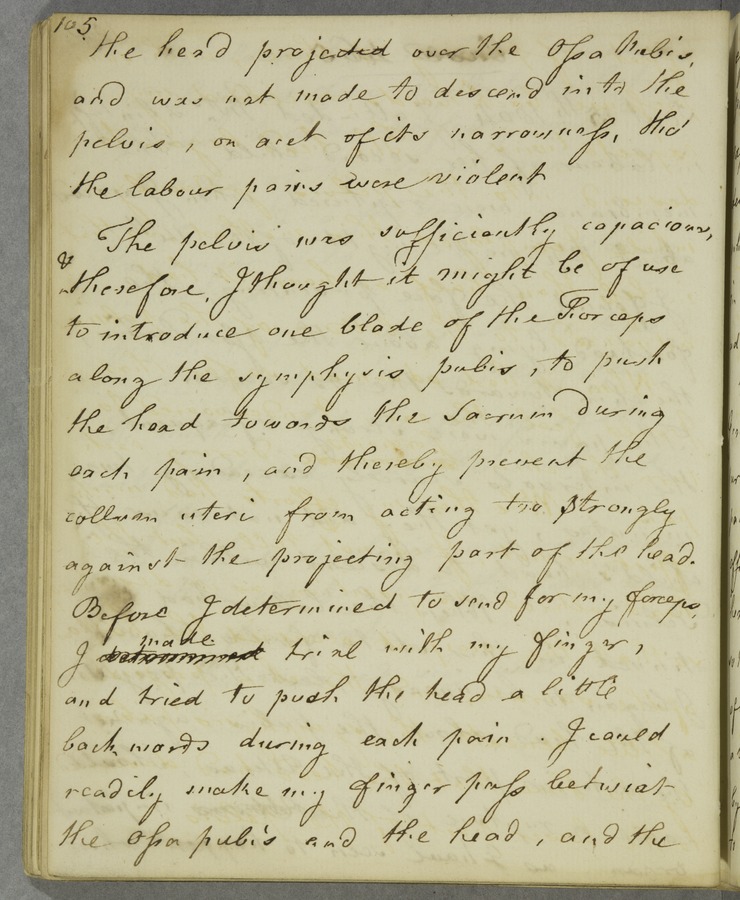 105
the head projected over the Ossa Pubis,
and was not made to descend into the
pelvis, on acct of its narrowness, tho'
the labour pains were violent
The pelvis was sufficiently capacious,
&
therefore, I thought it might be of use
to introduce one blade of the Forceps
along the symphysis pubis, to push
the head towards the Sacrum During
each pain, and thereby prevent the
collum uteri from acting too strongly
against the projecting part of the head.
Before I determined to send for my forceps,
made
I determined trial with my finger,
and tried to push the head a little
backwards during each pain. I could
readily make my finger pass betwixt
the ossa pubis and the head, and the